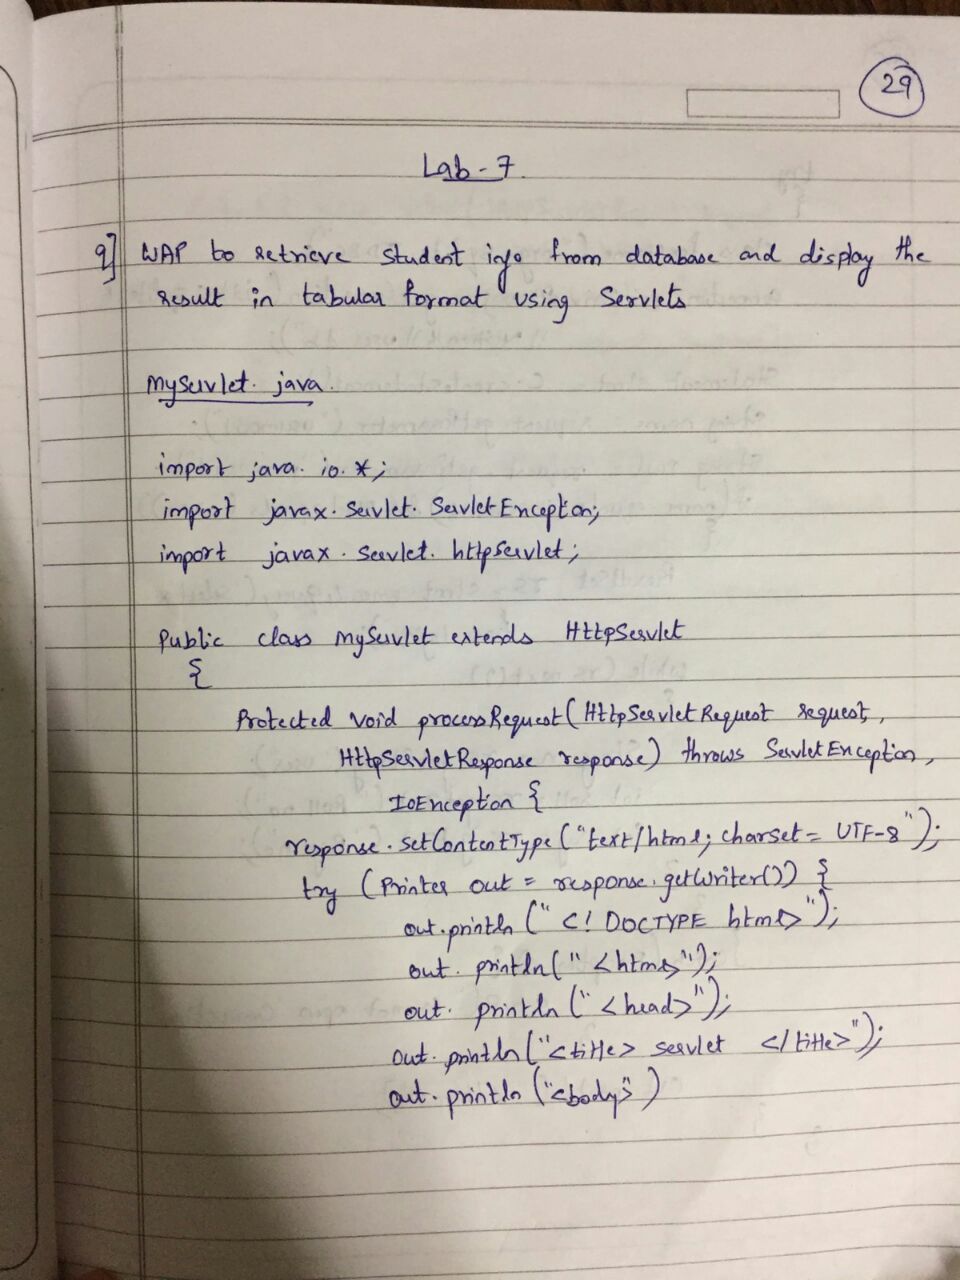 29
Lab - 7
q] WAP to retrieve student info from database and display the
result in tabular format using Servlets
MyServlet. java
import java. io. *;
import javax. Servlet. ServletException;
import javax. Servlet. httpServlet;
Public class MyServlet extends HttpServlet
{
Protected void processRequest(HttpServletRequest request,
HttpServletResponse response) throws ServletException,
IoException {
response. setContentType ("text/html; charset = UTF-8");
try (Printer out = response. getWriter()) {
out.println ("<! DOCTYPE html>");
out. println("<html>");
out. println ("<head>");
out. println ("<title> servlet </title>");
out. println ("<body>")